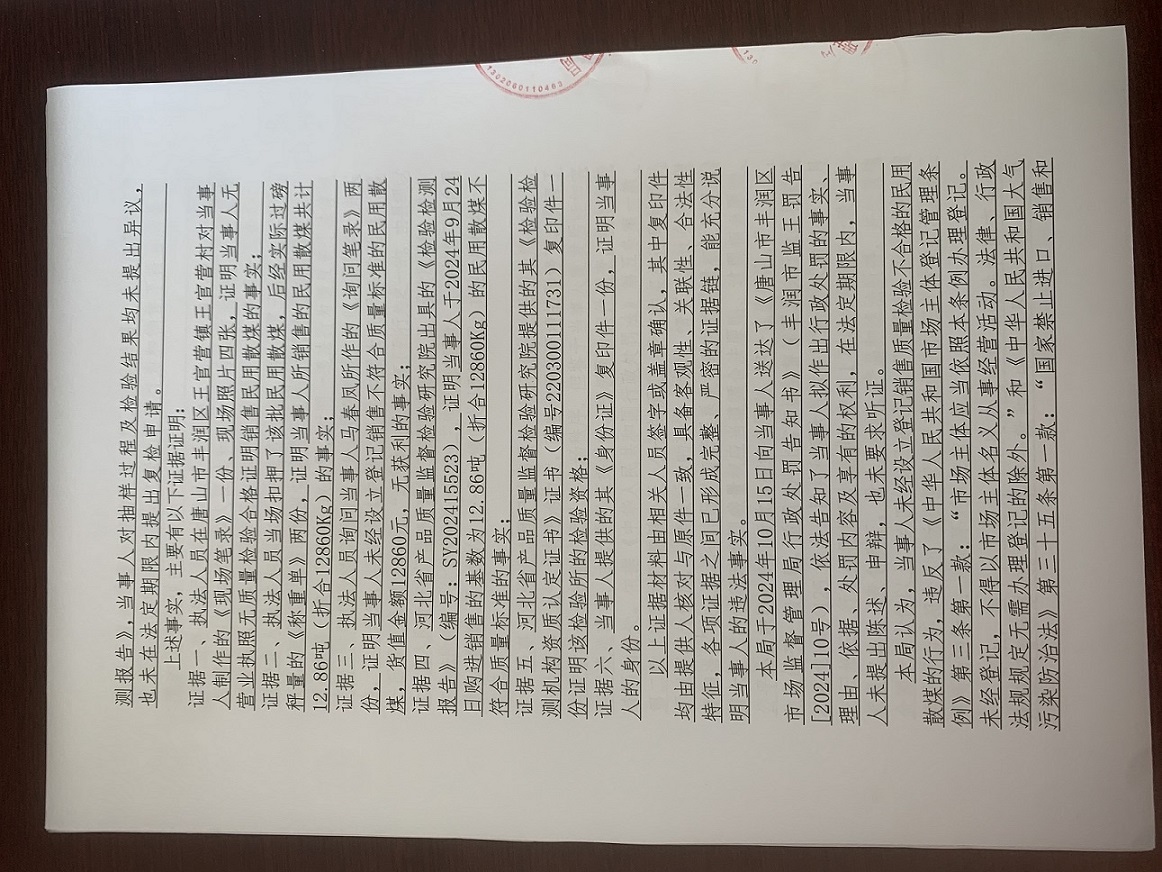 测报告》，当事人对抽样过程及检验结果均未提出异议，
也未在法定期限内提出复检申请。
上述事实，主要有以下证据证明：
证据一、执法人员在唐山市丰润区王官营镇王官营村对当事
人制作的《现场笔录》一份、现场照片四张，证明当事人无
营业执照无质量检验合格证明销售民用散煤的事实；
证据二、执法人员当场扣押了该批民用散煤，后经实际过磅
秤量的《称重单》两份，证明当事人所销售的民用散煤共计
12.86吨（折合12860Kg）的事实；
证据三、执法人员询问当事人马春凤所作的《询问笔录》两
份，证明当事人未经设立登记销售不符合质量标准的民用散
煤，货值金额12860元，无获利的事实；
证据四、河北省产品质量监督检验研究院出具的《检验检测
报告》（编号：SY202415523），证明当事人于2024年9月24
日购进销售的基数为12.86吨（折合12860Kg）的民用散煤不
符合质量标准的事实；
证据五、河北省产品质量监督检验研究院提供的其《检验检
测机构资质认定证书》（编号220300111731）复印件一
份证明该检验所的检验资格；
证据六、当事人提供的其《身份证》复印件一份，证明当事
人的身份。
以上证据材料由相关人员签字或盖章确认，其中复印件
均由提供人核对与原件一致，具备客观性、关联性、合法性
特征，各项证据之间已形成完整、严密的证据链，能充分说
明当事人的违法事实。
本局于2024年10月15日向当事人送达了《唐山市丰润区
市场监督管理局行政处罚告知书》（丰润市监王罚告
[2024]10号），依法告知了当事人拟作出行政处罚的事实、
理由、依据、处罚内容及享有的权利，在法定期限内，当事
人未提出陈述、申辩，也未要求听证。
本局认为，当事人未经设立登记销售质量检验不合格的民用
散煤的行为，违反了《中华人民共和国市场主体登记管理条
例》第三条第一款：“市场主体应当依照本条例办理登记。
未经登记，不得以市场主体名义从事经营活动。法律、行政
法规规定无需办理登记的除外。”和《中华人民共和国大气
污染防治法》第三十五条第一款：“国家禁止进口、销售和
1302080110483